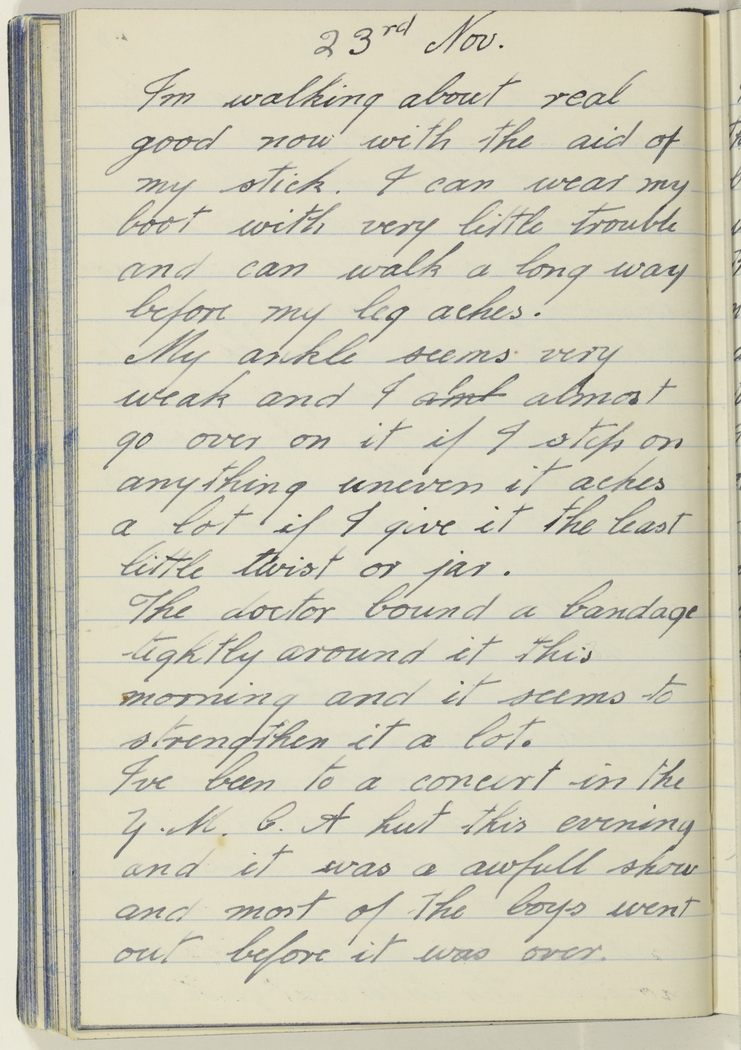 23rd Nov.
I'm walking about real
good now with the aid of
my stick. I can wear my
boot with very little trouble
and can walk a long way
before my leg aches.
My ankle seems very
weak and I almost
go over on it if I step on
anything uneven it aches
a lot if I give it the least
little twist or jar.
The doctor bound a bandage
tightly around it this
morning and it seems to
strengthen it a lot.
I've been to a concert in the
Y.M.C.A hut this evening
and it was a awfull show
and most of the boys went
out before it was over.